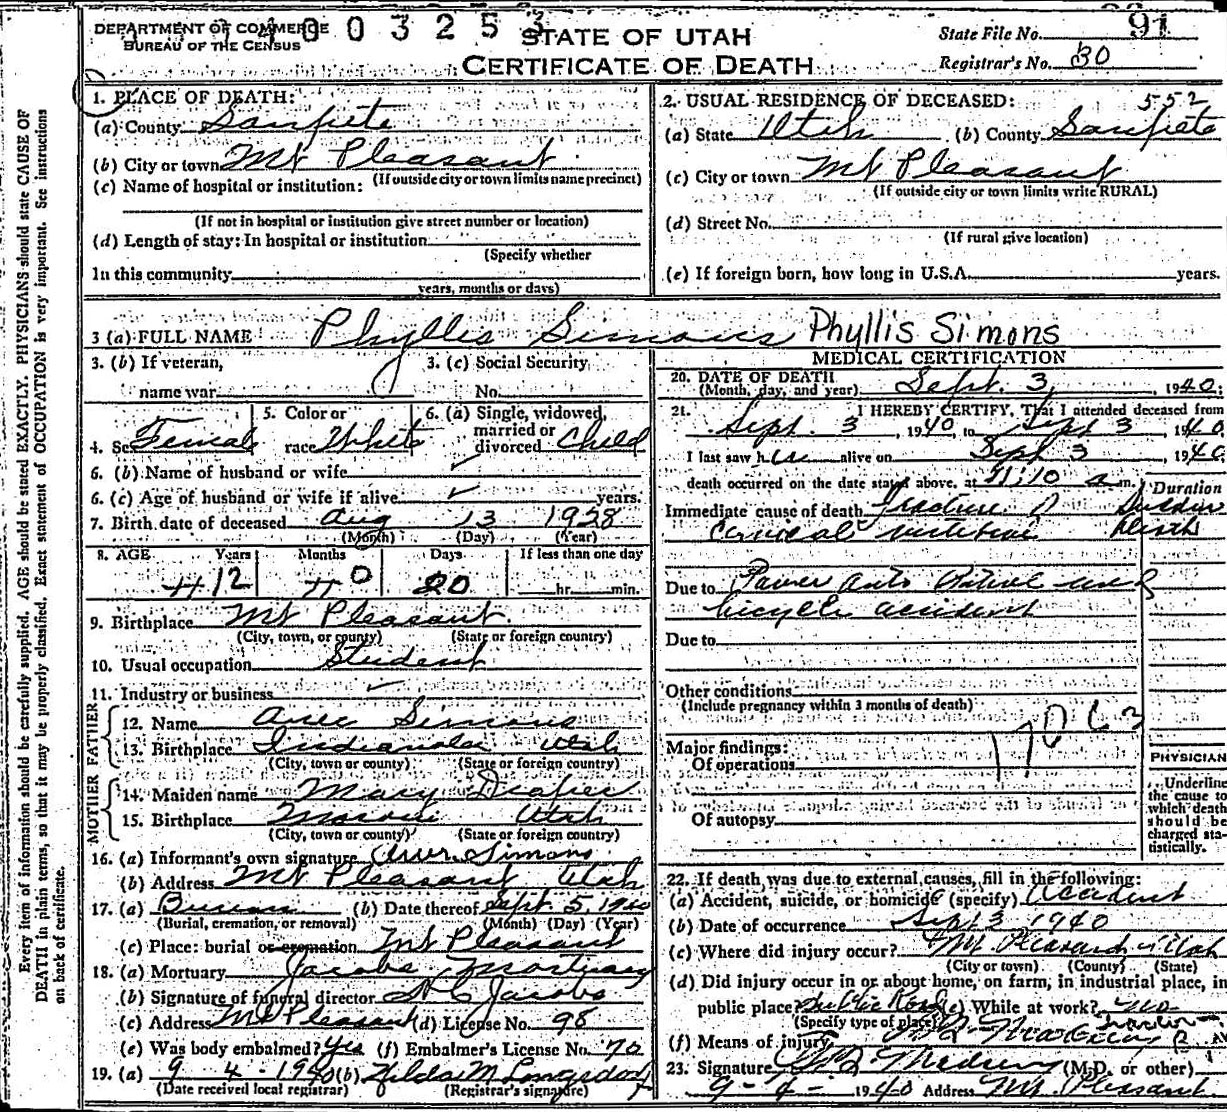 DEPARTMENT OF COMMERCE
BUREAU OF THE CENSUS
0 0 3 2 5 3
STATE OF UTAH
CERTIFICATE OF DEATH
State File No. 91
Registrar's No. 30
1. PLACE OF DEATH:
(a) County Sanpete
(b) City or town Mt Pleasant
(If outside city or town limits name precinct)
(c) Name of hospital or institution:
(If not in hospital or institution give street number or location)
(d) Length of stay: In hospital or institution
(Specify whether
In this community
years, months or days)
2. USUAL RESIDENCE OF DECEASED: 552
(a) State Utah (b) County Sanpete
(c) City or town Mt Pleasant
(If outside city or town limits write RURAL)
(d) Street No.
(If rural give location)
(e) If foreign born, how long in U.S.A. years.
3 (a) FULL NAME Phyllis Simons Phyllis Simons
3. (b) If veteran, 3. (c) Social Security
name war No.
4. Sex Female 5. Color or race White 6. (a) Single, widowed, married or divorced Child
6. (b) Name of husband or wife
6. (c) Age of husband or wife if alive years.
7. Birth date of deceased Aug 13 1928
(Month) (Day) (Year)
8. AGE Years Months Days If less than one day
12 0 20 hr. min.
9. Birthplace Mt Pleasant
(City, town, or county) (State or foreign country)
10. Usual occupation Student
11. Industry or business
FATHER
12. Name Simons
13. Birthplace Indianola Utah
(City, town or county) (State or foreign country)
MOTHER
14. Maiden name Mary Draper
15. Birthplace Moroni Utah
(City, town or county) (State or foreign country)
16. (a) Informant's own signature Simons
(b) Address Mt Pleasant Utah
17. (a) Burial (b) Date thereof Sept. 5, 1940
(Burial, cremation, or removal) (Month) (Day) (Year)
(c) Place: burial or cremation Mt Pleasant
18. (a) Mortuary Jacobs Mortuary
(b) Signature of funeral director Jacobs
(c) Address Mt Pleasant (d) License No. 98
(e) Was body embalmed? Yes (f) Embalmer's License No. 70
19. (a) 9-4-1940 (b) Hilda M. Longsdorf
(Date received local registrar) (Registrar's signature)
MEDICAL CERTIFICATION
20. DATE OF DEATH Sept. 3, 1940.
(Month, day, and year)
21. I HEREBY CERTIFY, That I attended deceased from
Sept. 3, 1940, to Sept 3 1940
I last saw her alive on Sept 3 1940
death occurred on the date stated above, at 11:10 a m. Duration
Immediate cause of death Fracture of Sudden
Cervical vertebrae death
Due to auto Patrol and
bicycle accident
Due to
Other conditions
(Include pregnancy within 3 months of death)
Major findings:
Of operations
Of autopsy
PHYSICIAN
Underline
the cause to
which death
should be
charged sta-
tistically.
22. If death was due to external causes, fill in the following:
(a) Accident, suicide, or homicide (specify) Accident
(b) Date of occurrence Sept 3 1940
(c) Where did injury occur? Mt Pleasant Utah
(City or town) (County) (State)
(d) Did injury occur in or about home, on farm, in industrial place, in
public place? Public Road (e) While at work? no
(Specify type of place)
(f) Means of injury
23. Signature (M.D. or other)
9-4-1940 Address Mt Pleasant
Every item of information should be carefully supplied. AGE should be stated EXACTLY. PHYSICIANS should state CAUSE OF
DEATH in plain terms, so that it may be properly classified. Exact statement of OCCUPATION is very important. See instructions
on back of certificate.